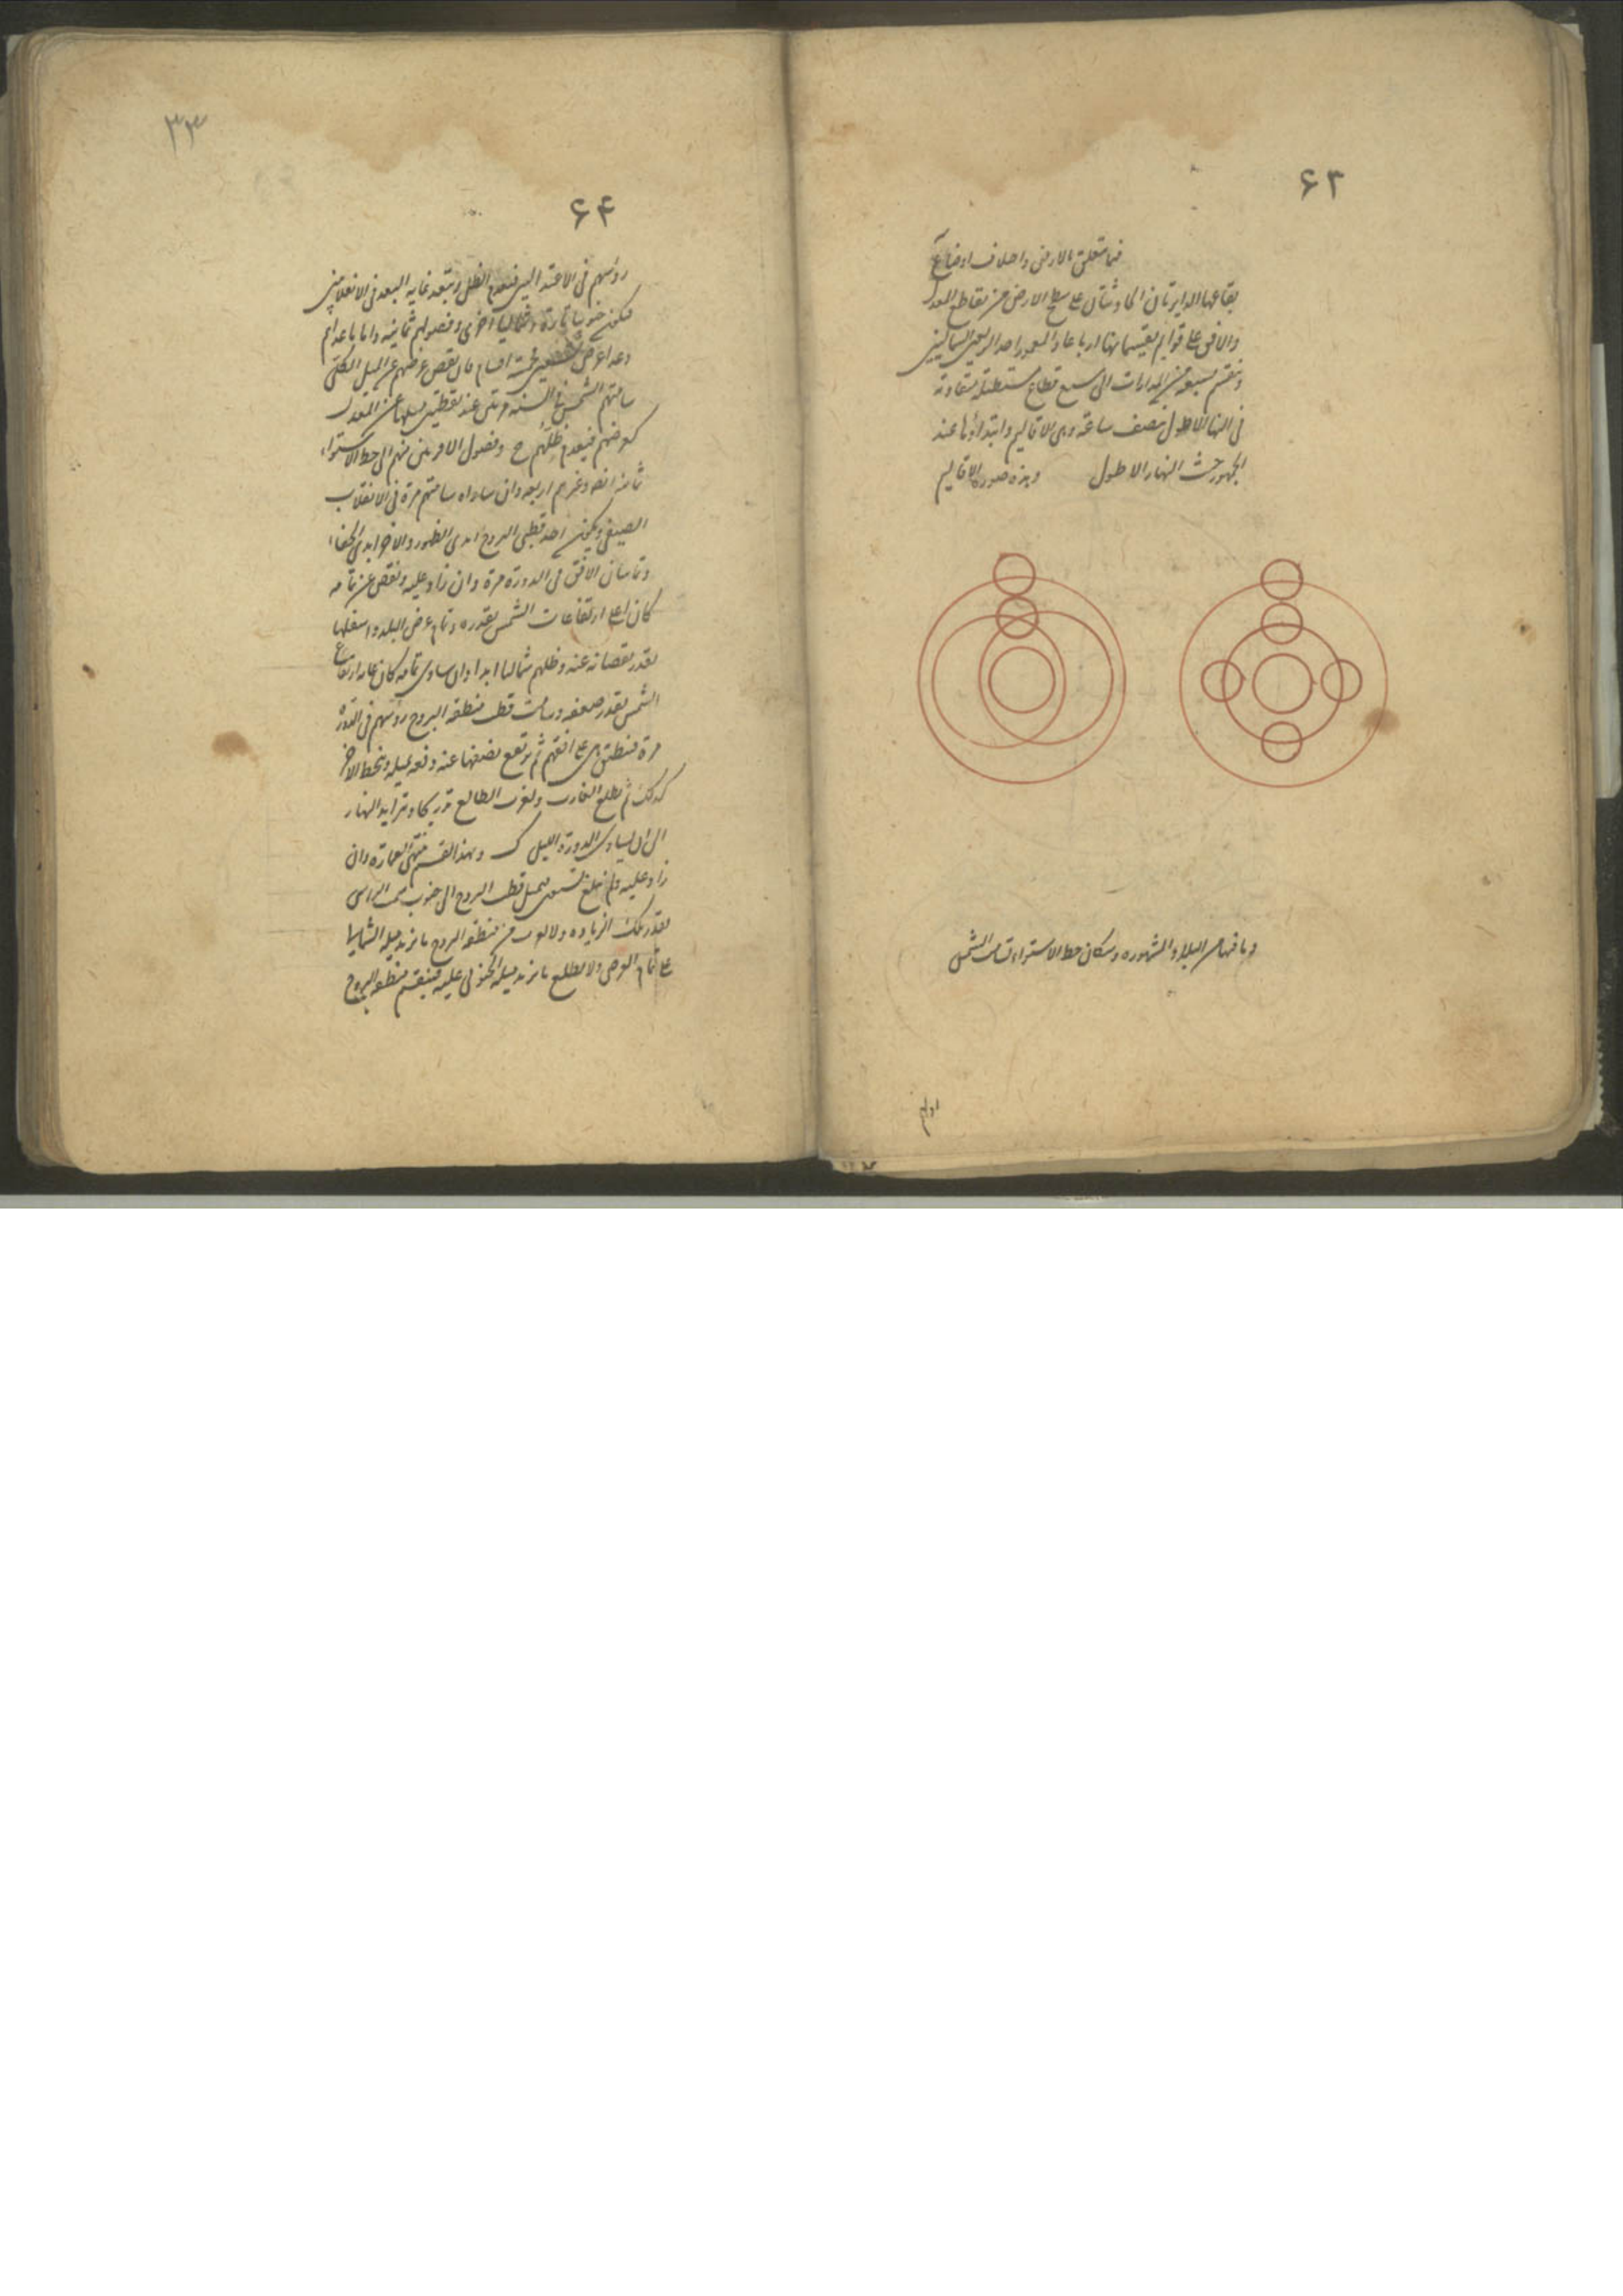 ۶۳
فيما يتعلق بالارض واختلاف اوضاع
بقاعها الدايرتان الحادثتان على سطح الارض من تقاطع المعدل
والافق على قوايم يقسمانها ارباعا والمعمور احد الربعين الشماليين
وينقسم سبعة من المدارات الى سبع قطاع مستطيلة متفاوتة
فى النهار الاطول بنصف ساعة وهى الاقاليم وابتداؤها عند
الجمهور حيث النهار الاطول وهذه صورة الاقاليم
وما فيها من البلاد المشهوره وسكان خط الاستواء تسامت الشمس
۳۳
۶۴
رؤسهم فى الاعتدالين فينعدم الظل وتبعد غاية البعد فى الانقلابين
فيكون جنوبيا تارة وشماليا اخرى وفصولهم ثمانية واما ما عداهم
وعدا عرض تسعين خمسة اقسام فان نقص عرضهم عن الميل الكلى
سامتهم الشمس فى السنة مرتين عند نقطتين ميلهما عن المعدل
كعرضهم فينعدم ظلهم ح وفصول الاقربين منهم الى خط الاستواء
ثمانية ايضا وغيرهم اربعة وان ساواه سامتهم مرة فى الانقلاب
الصيفى ويكون احد قطبى البروج ابدى الظهور والاخر ابدى الخفاء
وتماسان الافق فى الدورة مرة وان زاد عليه ونقص عن تمامه
كان اعلى ارتفاعات الشمس بقدره وتمام عرض البلد واسفلها
بقدر نقصانه عنه وظلهم شماليا ابدا وان ساوى تمامه كان غاية ارتفاع
الشمس بقدر ضعفه وسامت قطب منطقة البروج رؤسهم فى الدورة
مرة فينطبق هى على افقهم ثم يرتفع نصفها عنه دفعة وينحط الاخر
كذلك ثم يطلع الغارب ويغرب الطالع تدريجا ويتزايد النهار
الى ان يساوى الدورة والليل ك وبهذا القسم منتهى العمارة وان
زاد عليه ولم يبلغ تسعين فيميل قطب البروج الى جنوب سمت الراس
بقدر تلك الزياده ولا يغرب من منطقة البروج ما يزيد ميله الشمالى
على تمام العرض ولا يطلع ما يزيد ميله الجنوبى عليه فينقسم منطقة البروج